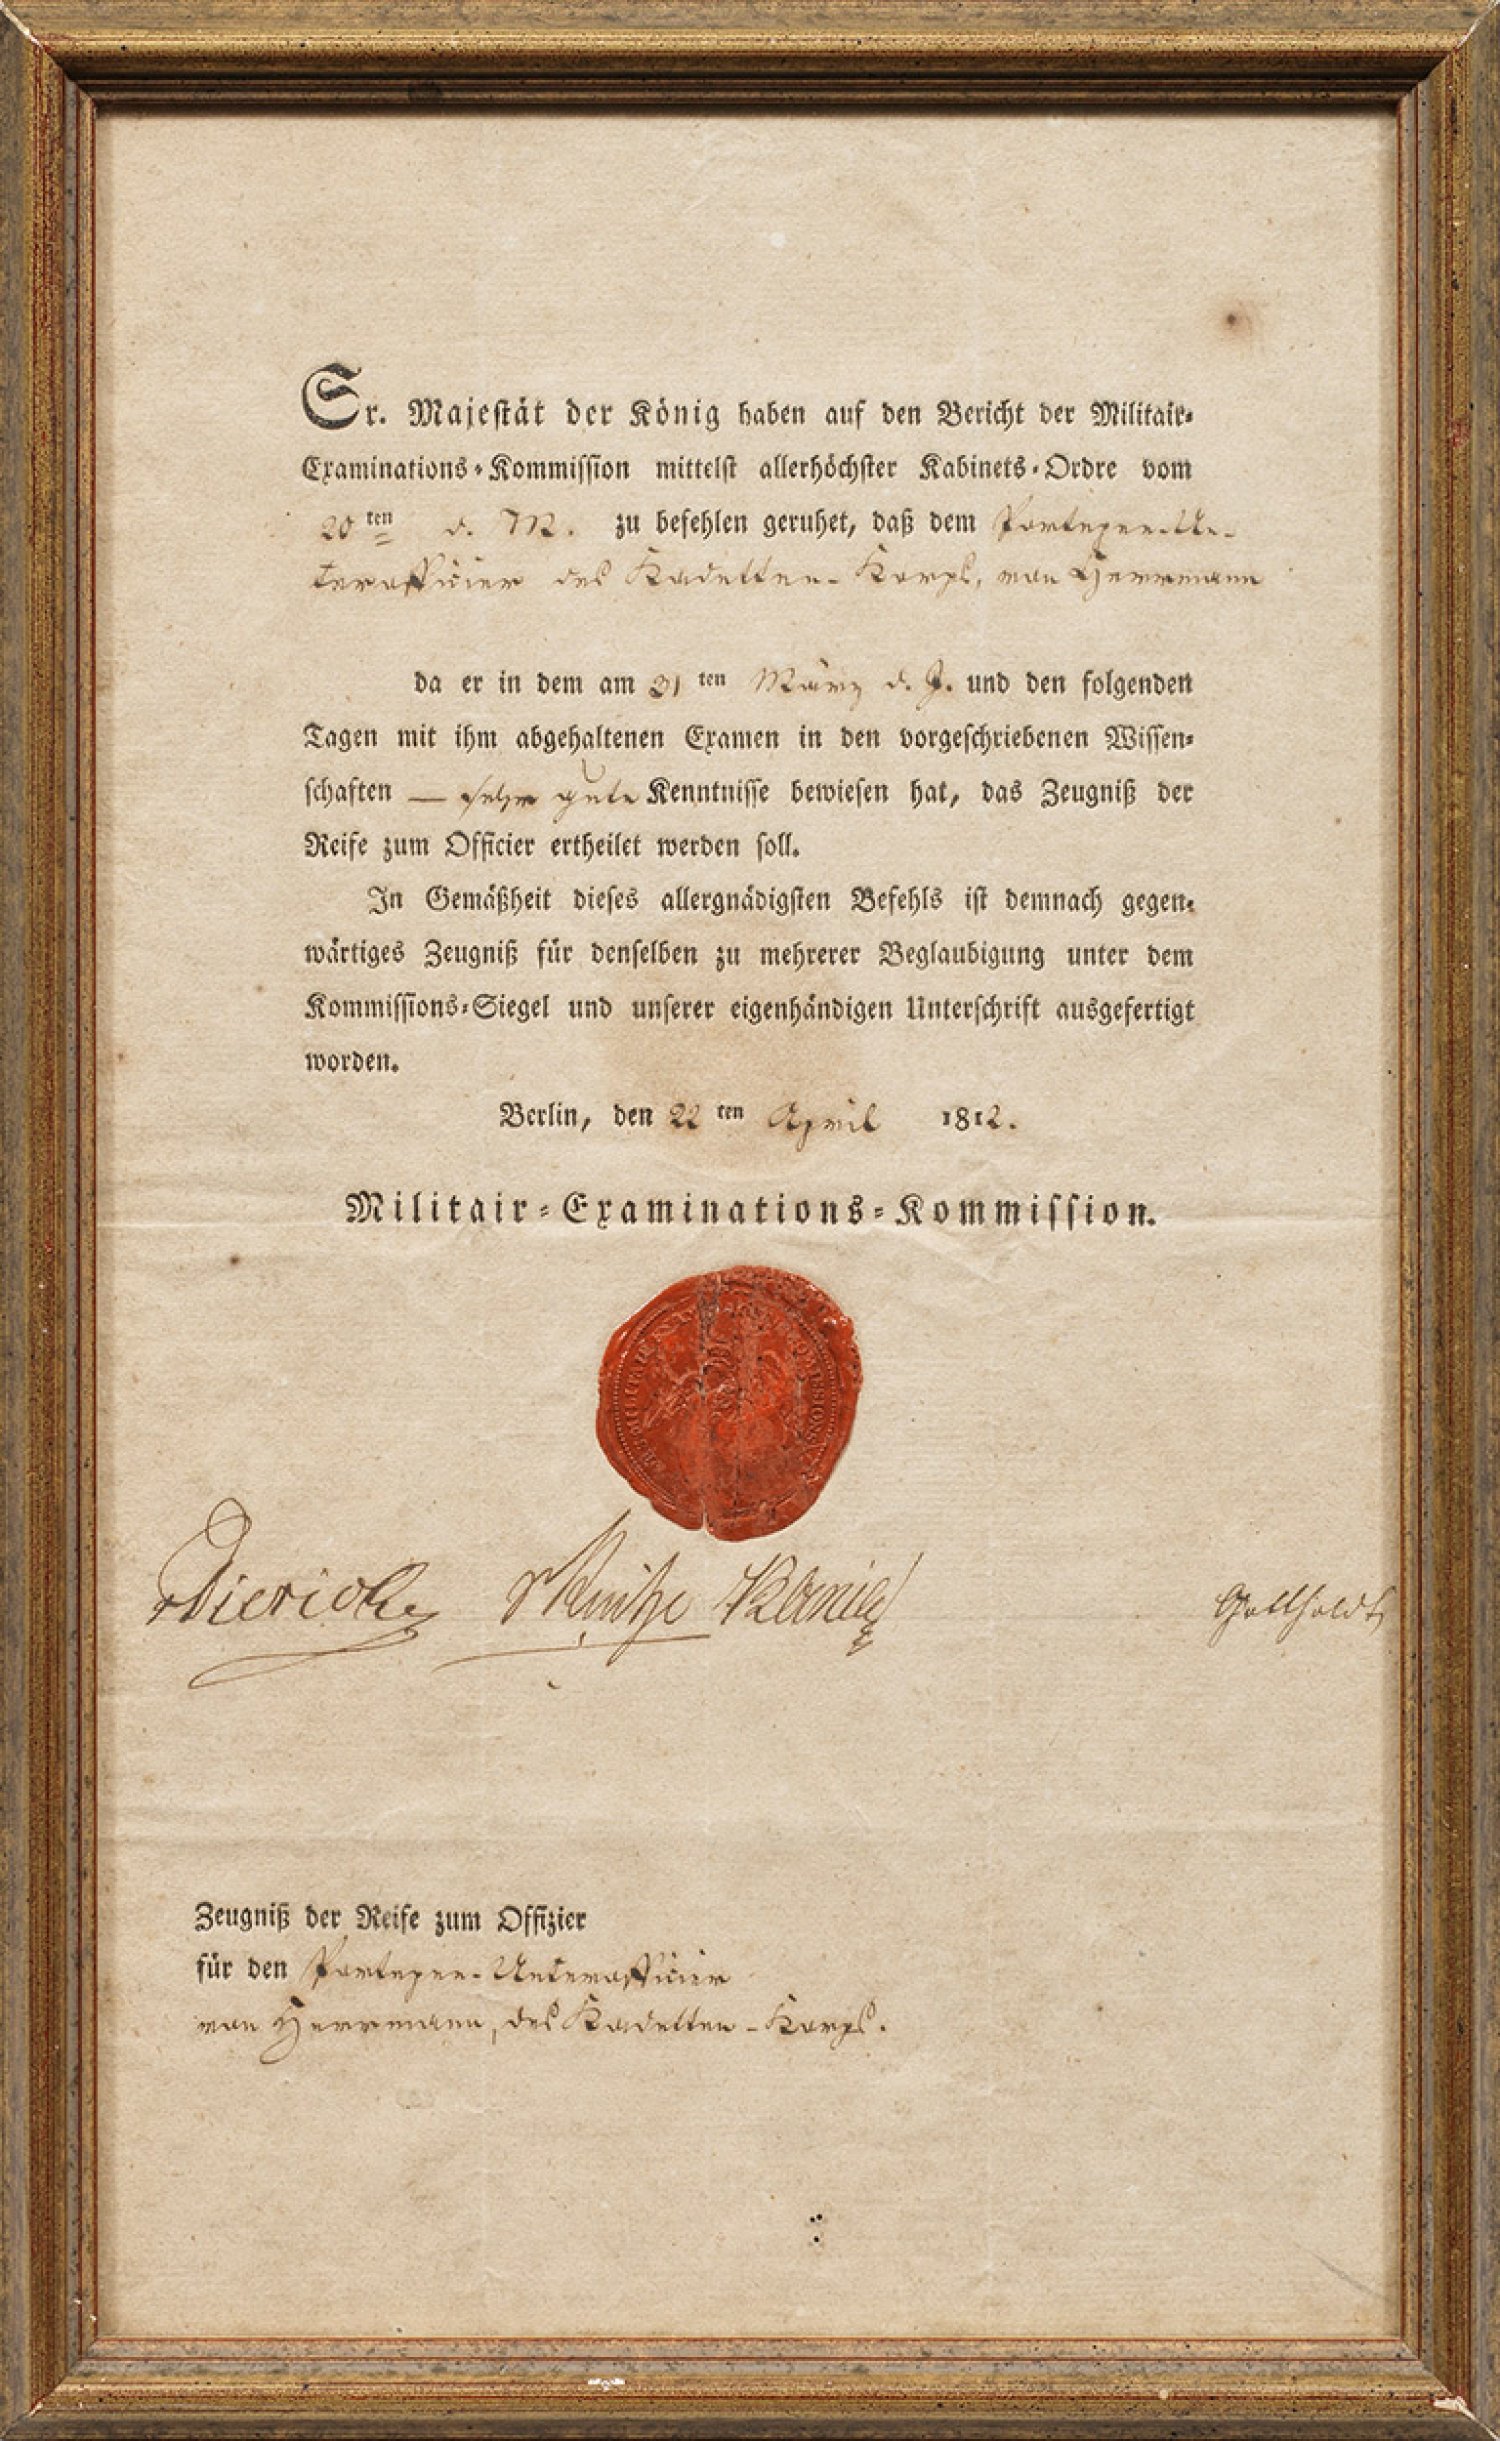 Sr. Majestät der König haben auf den Bericht der Militair-
Examinations-Kommission mittelst allerhöchster Kabinets-Ordre vom
20 ten d. M. zu befehlen geruhet, daß dem Portepee-Un-
terofficier des Kadetten-Korps, von Herrmann
da er in dem am 31 ten März d. J. und den folgenden
Tagen mit ihm abgehaltenen Examen in den vorgeschriebenen Wissen-
schaften — sehr gute Kenntnisse bewiesen hat, das Zeugniß der
Reife zum Officier ertheilet werden soll.
In Gemäßheit dieses allergnädigsten Befehls ist demnach gegen-
wärtiges Zeugniß für denselben zu mehrerer Beglaubigung unter dem
Kommissions-Siegel und unserer eigenhändigen Unterschrift ausgefertigt
worden.
Berlin, den 22 ten April 1812.
Militair-Examinations-Kommission.
Diericke Gotthold
Zeugniß der Reife zum Offizier
für den Portepee-Unterofficier
von Herrmann, des Kadetten-Korps.